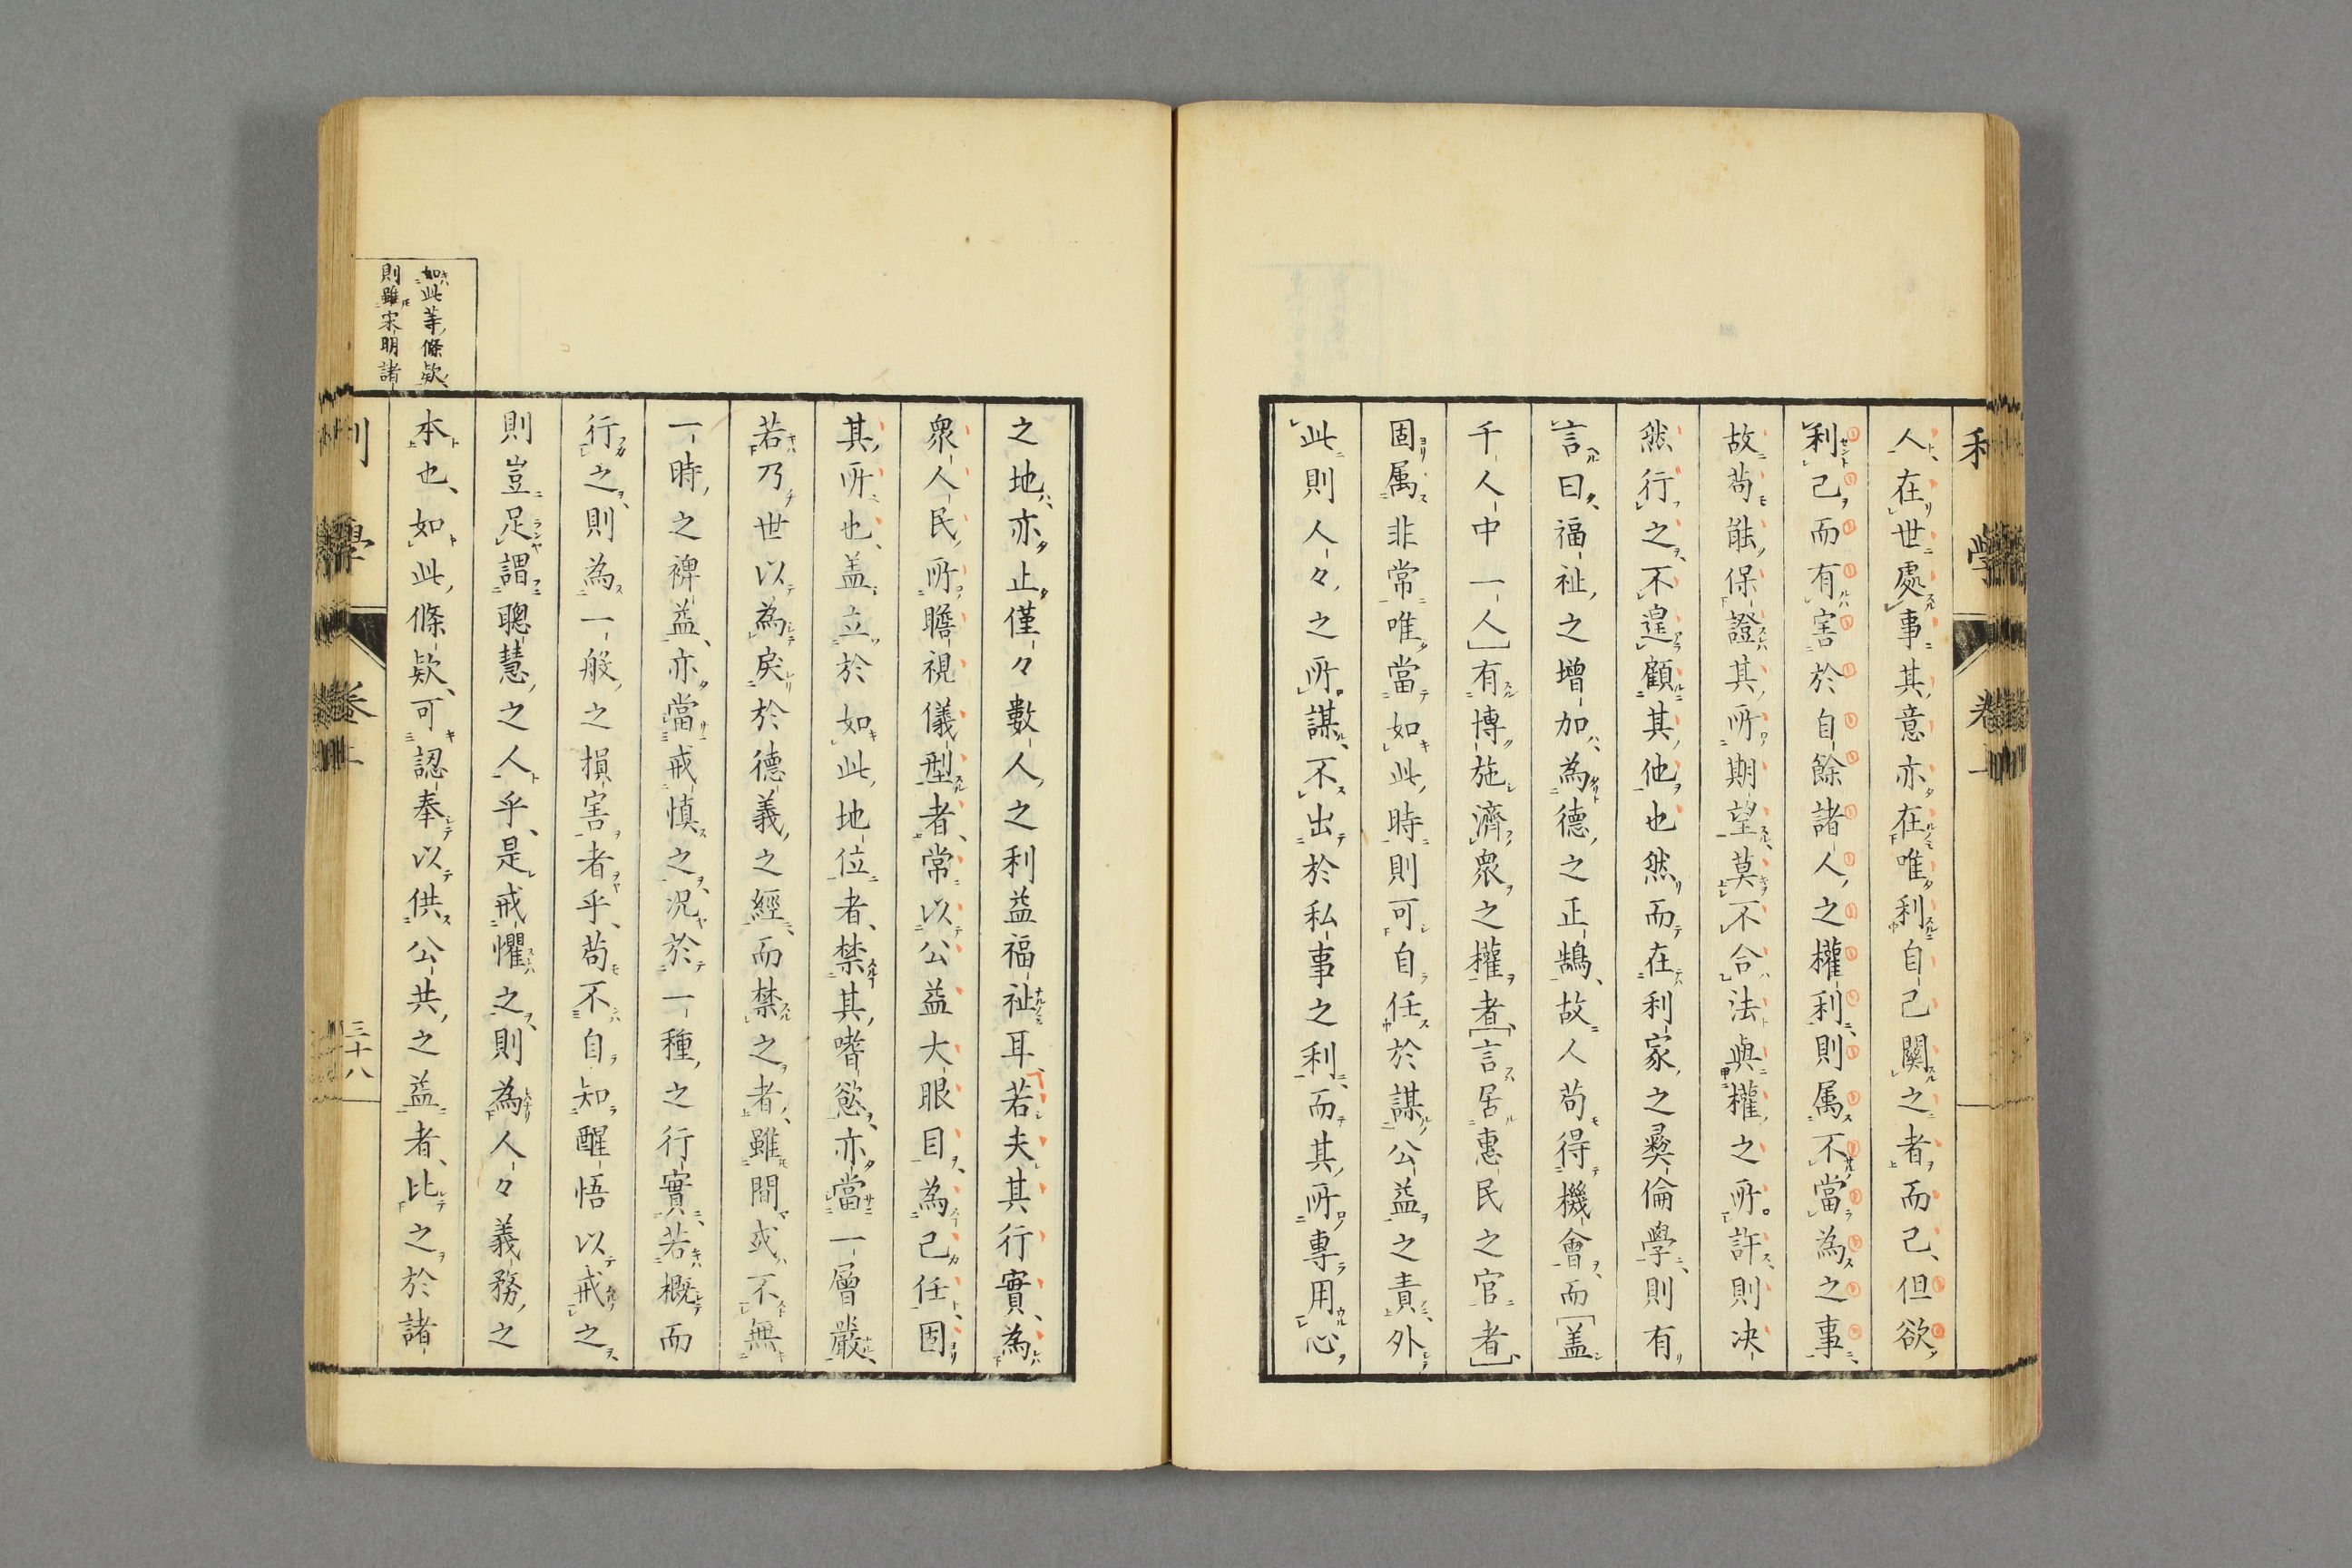 人在世處事其意亦在唯利自己關之者而己、但欲
利己而有害於自餘諸人之權利則属不當為之事
故苟能保證其所期望莫不合法與權之所許則决
然行之不遑顧其他也然而在利家之彜倫學則有
言曰福祉之增加為德之正鵠、故人苟得機會而[盖
千人中一人]有博施濟衆之權者[言居惠民之官者]
固属非常唯當如此時則可自任於謀公益之責外
此則人々之所謀不出於私事之利而其所專用心
之地亦止僅々數人之利益福祉耳若夫其行實、為
衆人民所瞻視儀型者、常以公益大眼目為己任、固
其所也、盖立於如此地位者、禁其嗜慾亦當一層嚴
若乃世以為戾於德義之經而禁之者、雖間或不無
一時之裨益、亦當戒慎之、况於一種之行實、若概而
行之、則為一般之損害者乎、苟不自知醒悟以戒之、
則豈足謂聰慧之人乎、是戒懼之、則為人々義務之
本也、如此條欵、可認奉以供公共之益者、比之於諸
如此等條欵
則雖宋明諸
利學 卷一
三十八